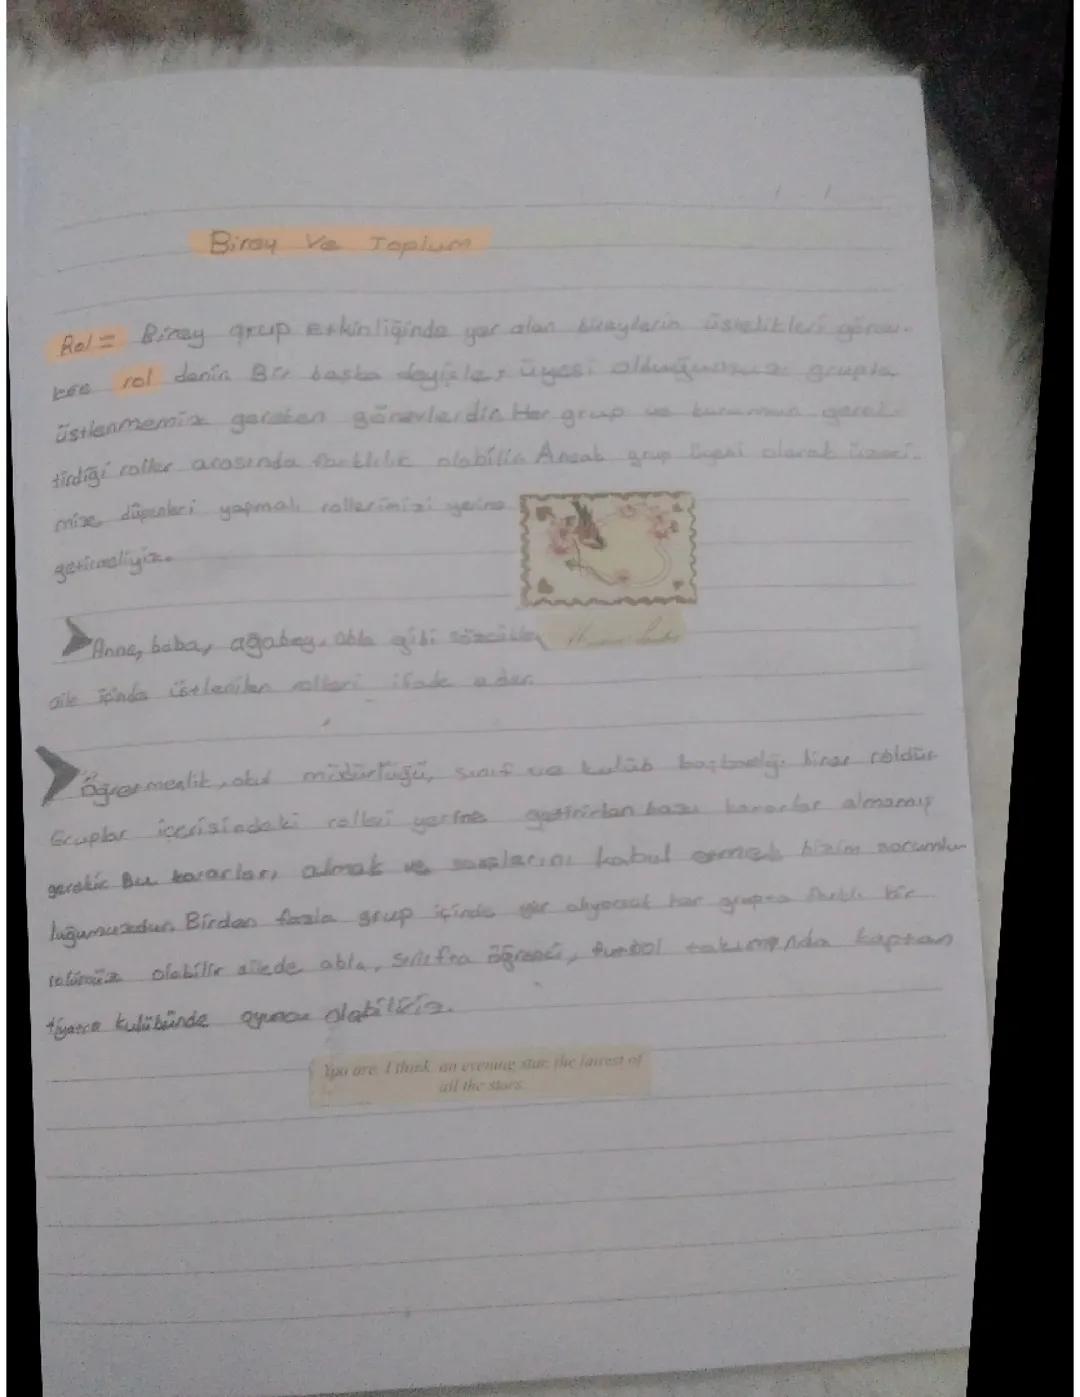 Birey Ve Toplum
Rol = Birey grup Etkinliğinde yer alan bireylerin üstelikleri görev-
rol denir. Bir başka deyişle, üyesi olduğumuz grupta
üstlenmemiz gereken görevlerdir. Her grup ve kurumun gerek-
tirdiği roller arasında farklılık olabilir. Ancak grup üyesi olarak üzeri-
mize düşenleri yapmalı rollerimizi yerine
getirmeliyiz.
Anne, baba, ağabey, abla gibi sözcükler
aile içinde üstlenilen rolleri ifade eder.
Öğretmenlik, okul müdürlüğü, sınıf ve kulüb başkanlığı birer roldür
Gruplar içerisindeki rolleri yerine getirirken bazı kararlar almamız
gerekir. Bu kararları almak ve sonuçlarını kabul etmek bizim sorumlu-
luğumuzdur. Birden fazla grup içinde yer alıyorsak her grupta farklı bir
rolümüz olabilir ailede abla, sınıfta öğrenci, futbol takımında kaptan
tiyatro kulübünde oyuncu olabiliriz.
You are, I think, an evening star, the fairest of
all the stars.